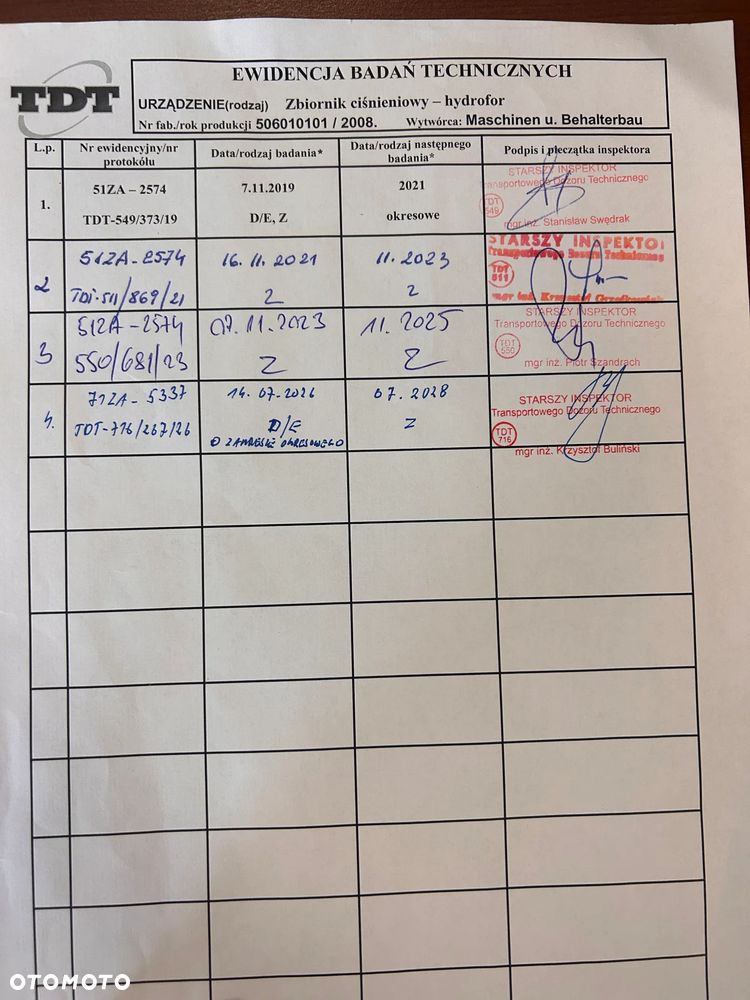 TDT
EWIDENCJA BADAŃ TECHNICZNYCH
URZĄDZENIE(rodzaj) Zbiornik ciśnieniowy – hydrofor
Nr fab./rok produkcji 506010101 / 2008. Wytwórca: Maschinen u. Behalterbau
L.p. Nr ewidencyjny/nr protokółu Data/rodzaj badania* Data/rodzaj następnego badania* Podpis i pieczątka inspektora
1. 51ZA – 2574 7.11.2019 2021
TDT-549/373/19 D/E, Z okresowe
STARSZY INSPEKTOR
Transportowego Dozoru Technicznego
TDT 549
mgr inż. Stanisław Swędrak
2 51ZA-2574 16.11.2021 11.2023
TDT-511/869/21 Z Z
STARSZY INSPEKTOR
Transportowego Dozoru Technicznego
TDT 511
mgr inż. Krzysztof
3 51ZA-2574 07.11.2023 11.2025
550/681/23 Z Z
STARSZY INSPEKTOR
Transportowego Dozoru Technicznego
TDT 550
mgr inż. Piotr Szandrach
4. 71ZA-5337 14.07.2026 07.2028
TDT-716/267/26 D/E Z
O ZAKRESIE OKRESOWEGO
STARSZY INSPEKTOR
Transportowego Dozoru Technicznego
TDT 716
mgr inż. Krzysztof Buliński
OTOMOTO